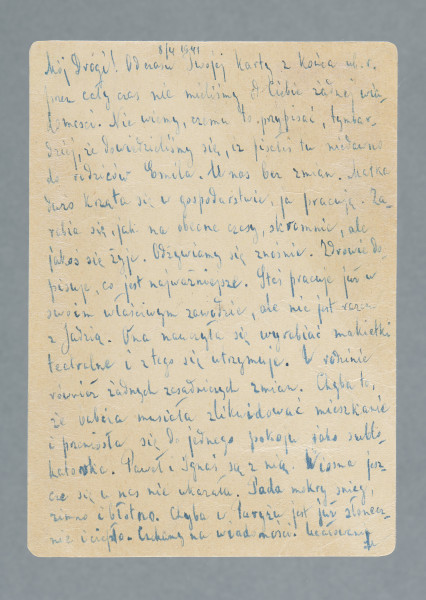 8/4 1941
Mój Drogi! Od czasu Twojej karty z końca ub. r.
przez cały czas nie mieliśmy od Ciebie żadnej wia-
domości. Nie wiemy, czemu to przypisać, tymbar-
dziej, że dowiedzieliśmy się, iż pisałeś tu niedawno
do rodziców Emila. U nas bez zmian. Matka
dużo krząta się w gospodarstwie, ja pracuję. Za-
rabia się, jak na obecne czasy, skromnie, ale
jakoś się żyje. Odżywiamy się znośnie. Zdrowie do-
pisuje, co jest najważniejsze. Stej pracuje już w
swoim właściwym zawodzie, ale nie jest razem
z Jadzią. Ona nauczyła się wyrabiać makietki
teatralne i z tego się utrzymuje. W rodzinie
również żadnych zasadniczych zmian. Chyba to,
że musiała zlikwidować mieszkanie
i przeniosła się do jednego pokoju jako sublo-
katorka. Paweł i Ignaś są z nią. Wiosna jesz-
cze się u nas nie ukazała. Pada mokry śnieg,
zimno i błotno. Chyba w Paryżu jest już słonecz-
nie i ciepło. Czekamy na wiadomości. Całujemy